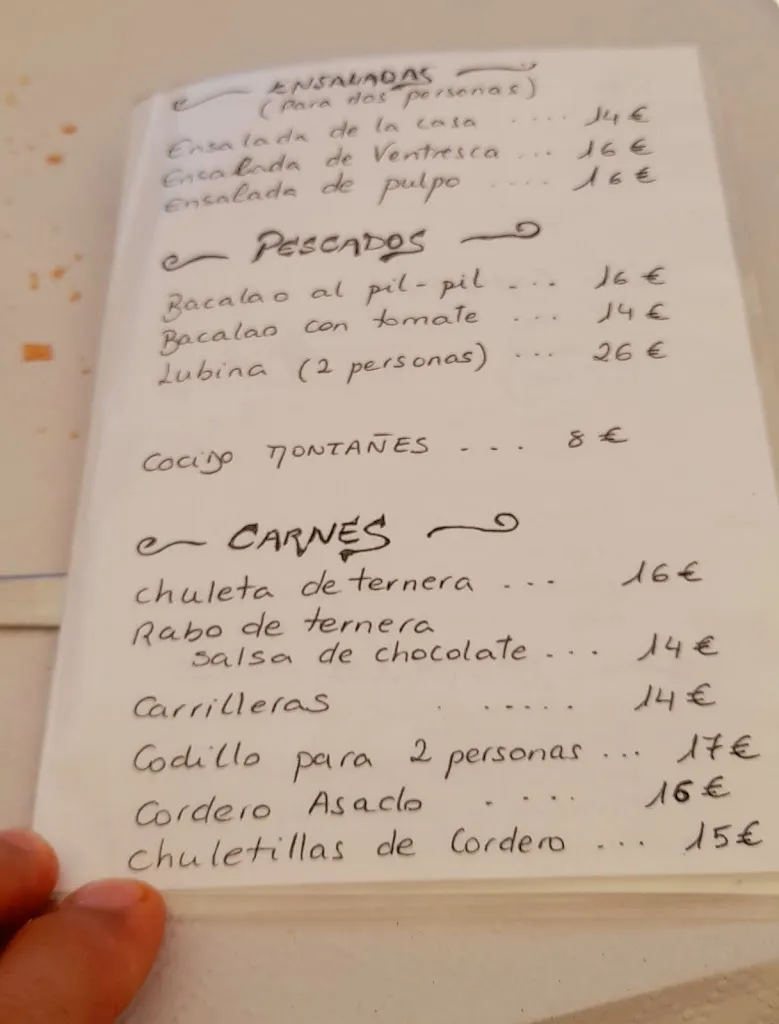 ENSALADAS
(Para dos personas)
Ensalada de la casa .... 14 €
Ensalada de Ventresca ... 16 €
Ensalada de pulpo .... 16 €
PESCADOS
Bacalao al pil-pil ... 16 €
Bacalao con tomate ... 14 €
Lubina (2 personas) ... 26 €
Cocido MONTAÑES ... 8 €
CARNES
chuleta de ternera ... 16 €
Rabo de ternera
salsa de chocolate ... 14 €
Carrilleras ...... 14 €
Codillo para 2 personas ... 17 €
Cordero Asado .... 16 €
Chuletillas de Cordero ... 15 €